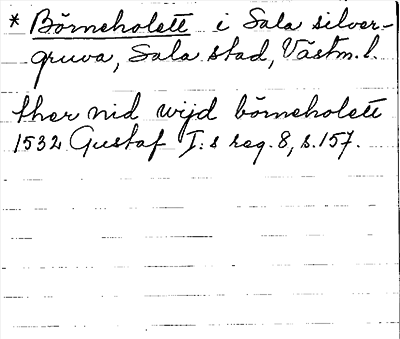 * Börneholett i Sala silver-
gruva, Sala stad, Västm. l.
ther nid wijd börneholett
1532 Gustaf I:s reg. 8, s. 157.